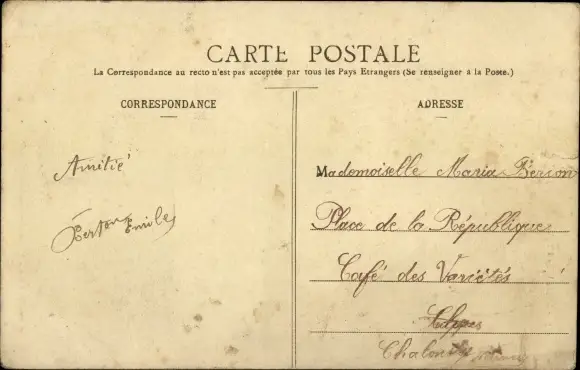 CARTE POSTALE
La Correspondance au recto n'est pas acceptée par tous les Pays Etrangers (Se renseigner à la Poste.)
CORRESPONDANCE
Amitié
Emile
ADRESSE
Mademoiselle Maria
Place de la République
Café des Variétés